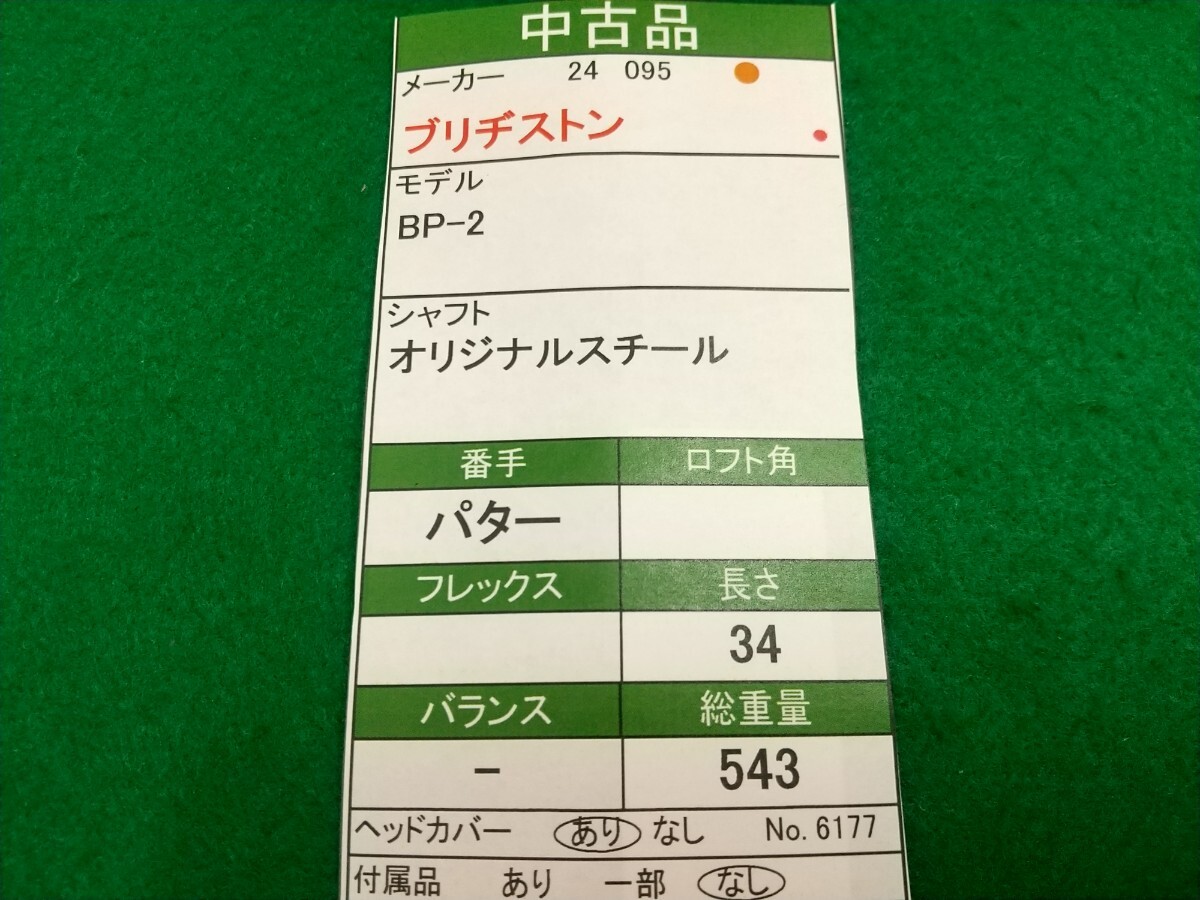 中古品
メーカー 24 095
ブリヂストン
モデル
BP-2
シャフト
オリジナルスチール
番手 ロフト角
パター
フレックス 長さ
34
バランス 総重量
- 543
ヘッドカバー あり なし No. 6177
付属品 あり 一部 なし